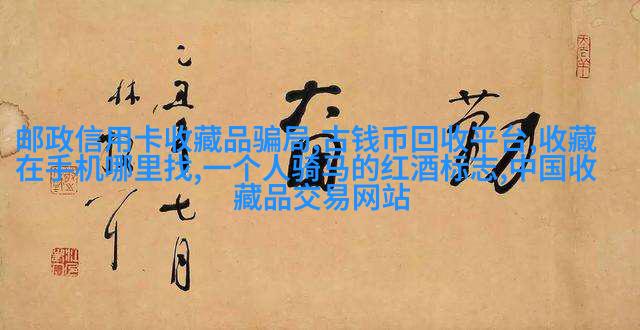 邮政信用卡收藏品骗局,古钱币回收平台,收藏
在手机哪里找,一个人骑马的红酒标志,中国收
藏品交易网站
勤奮
乙丑年七月
林散耳